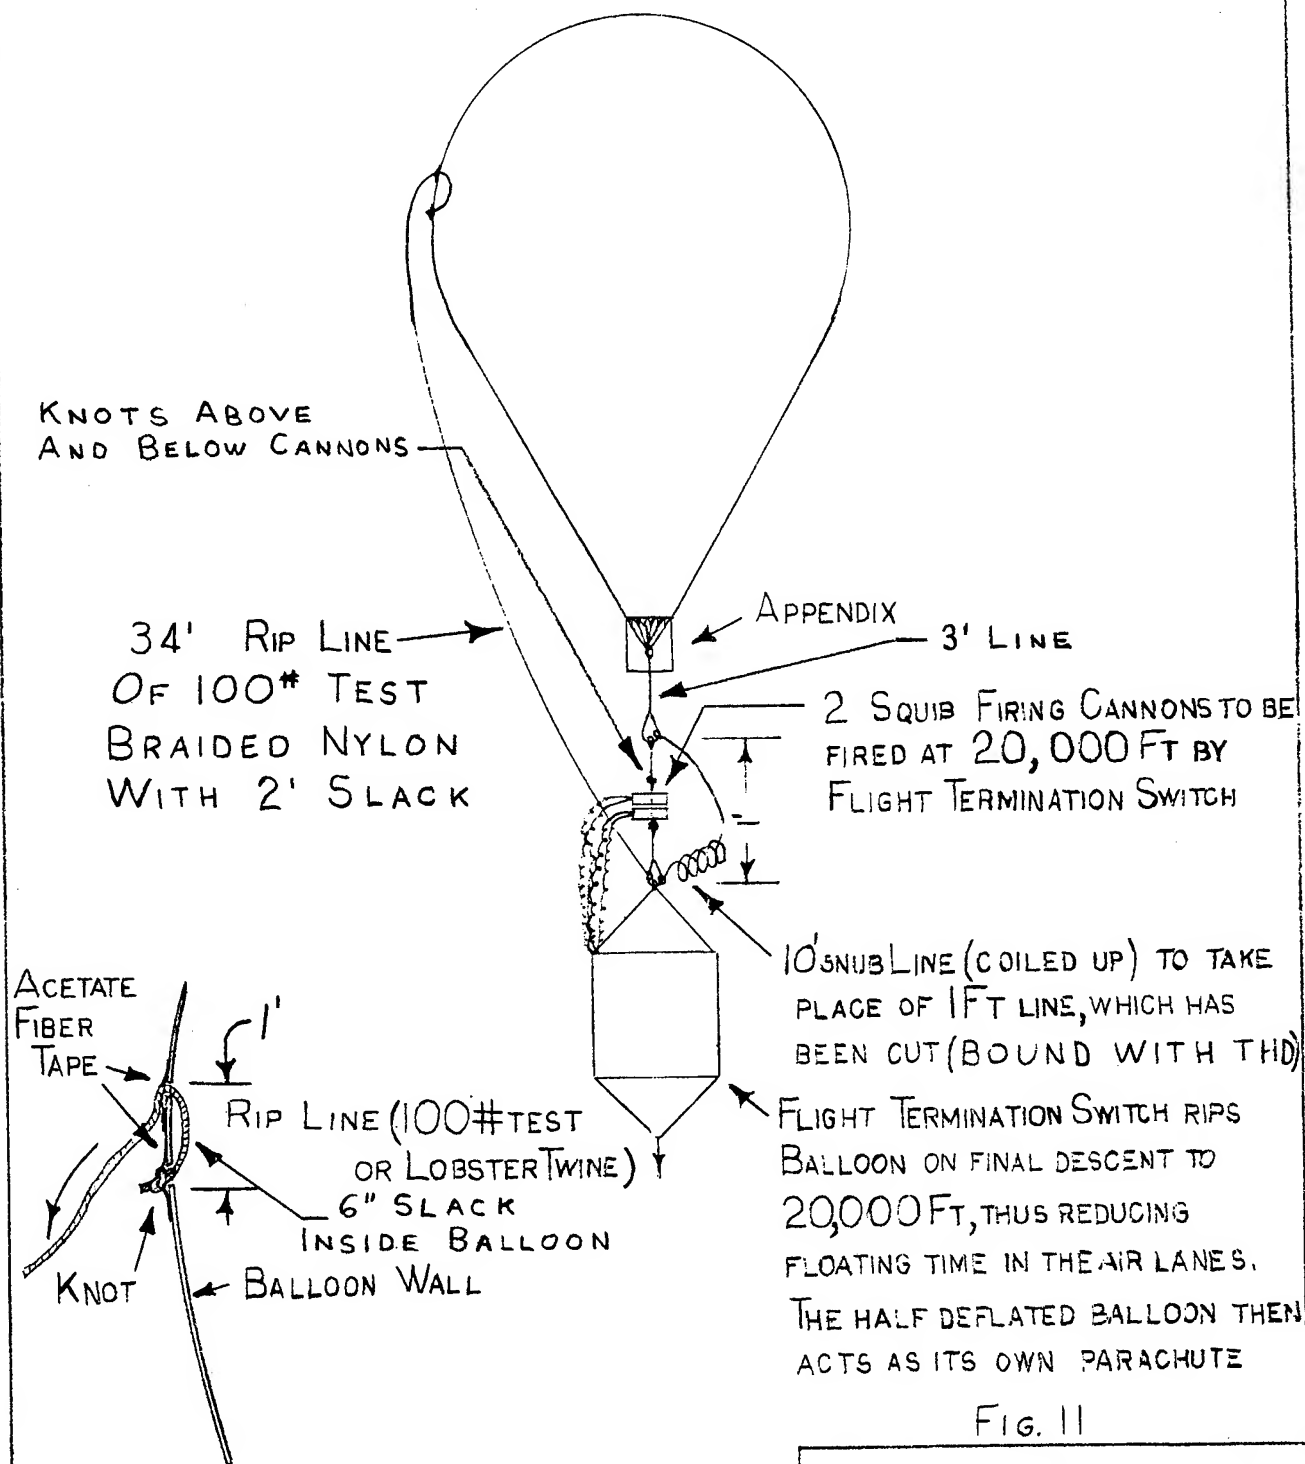 KNOTS ABOVE
AND BELOW CANNONS
34' RIP LINE
OF 100# TEST
BRAIDED NYLON
WITH 2' SLACK
APPENDIX
3' LINE
2 SQUIB FIRING CANNONS TO BE
FIRED AT 20,000 FT BY
FLIGHT TERMINATION SWITCH
10' SNUB LINE (COILED UP) TO TAKE
PLACE OF 1FT LINE, WHICH HAS
BEEN CUT (BOUND WITH THD)
FLIGHT TERMINATION SWITCH RIPS
BALLOON ON FINAL DESCENT TO
20,000 FT, THUS REDUCING
FLOATING TIME IN THE AIR LANES.
THE HALF DEFLATED BALLOON THEN
ACTS AS ITS OWN PARACHUTE
ACETATE
FIBER
TAPE
1'
RIP LINE (100# TEST
OR LOBSTER TWINE)
6" SLACK
INSIDE BALLOON
KNOT
BALLOON WALL
FIG. 11